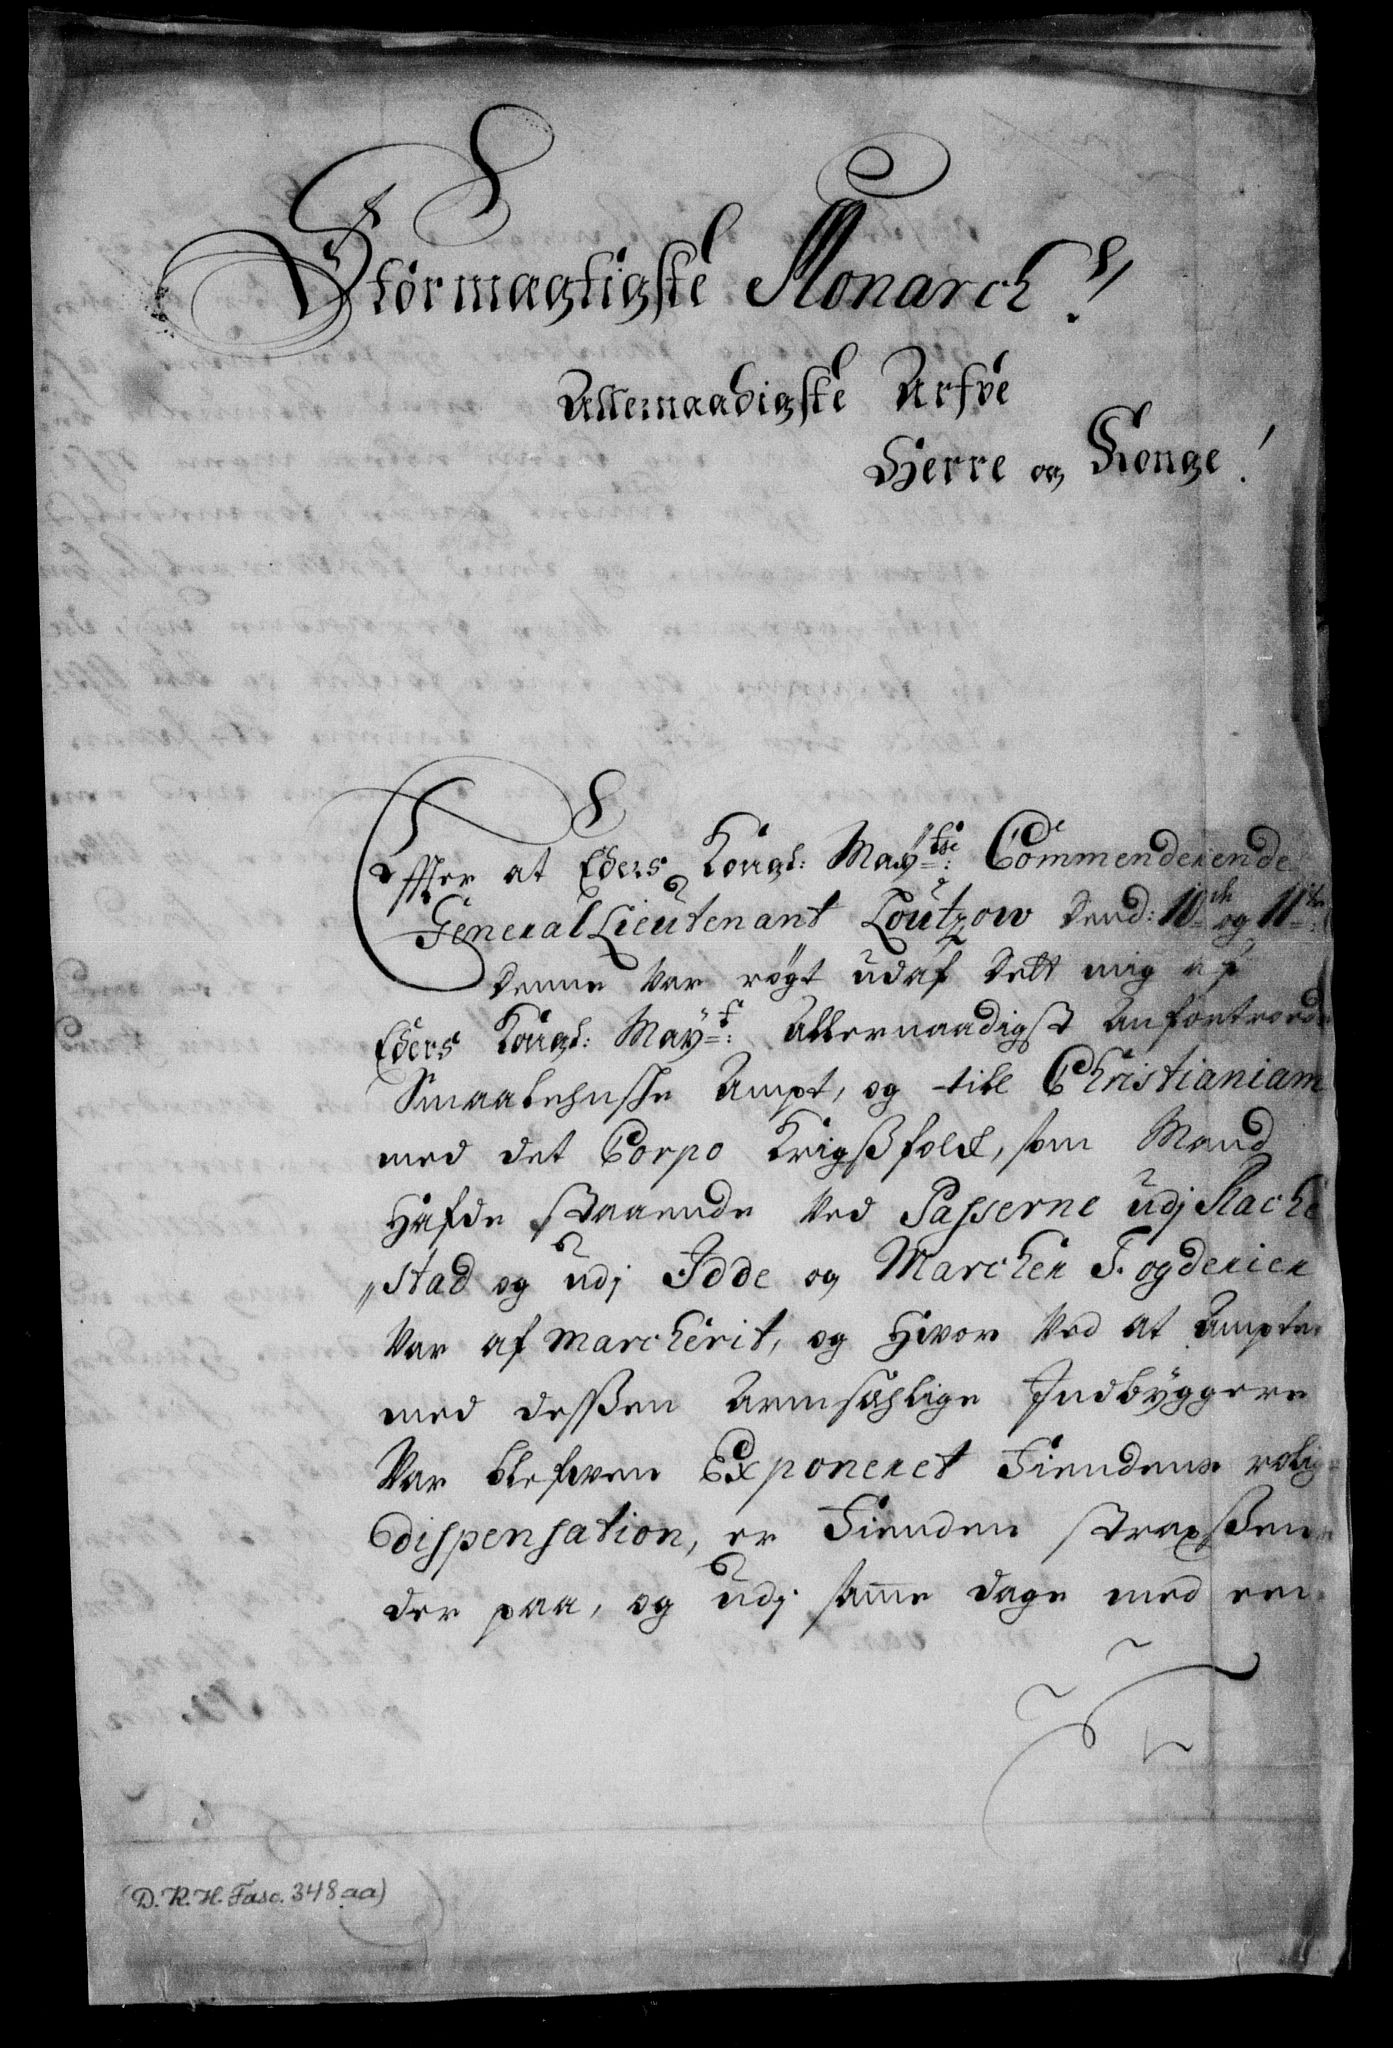 Stormagtigste Monarch!
Allernaadigste Arfve
Herre og Konge!
Effter at Eders Kongl: May=tsi: Commenderende
General Lieutenant Loutzow dend: 10=de og 11=te:
Denne var røgt udaf Dett mig af
Eders Kongl: May=t: Allernaadigst Anfortroede
Smaalehnshe Ampt, og till Christianiam
med det Corpo Krigsfolck, som Mand
Hafde staaende ved Passerne udj Racke
"stad og udj Idde og Marcker Fogderier
var af marcherit, og Hvor ved at Ampte
med dessen Armsählige Indbyggere
var blefven Exponeret Fiendens
dispensation, er Fienden straxsen
der paa, og udj samme dage med en
(D. R. H. Fasc. 348 aa)